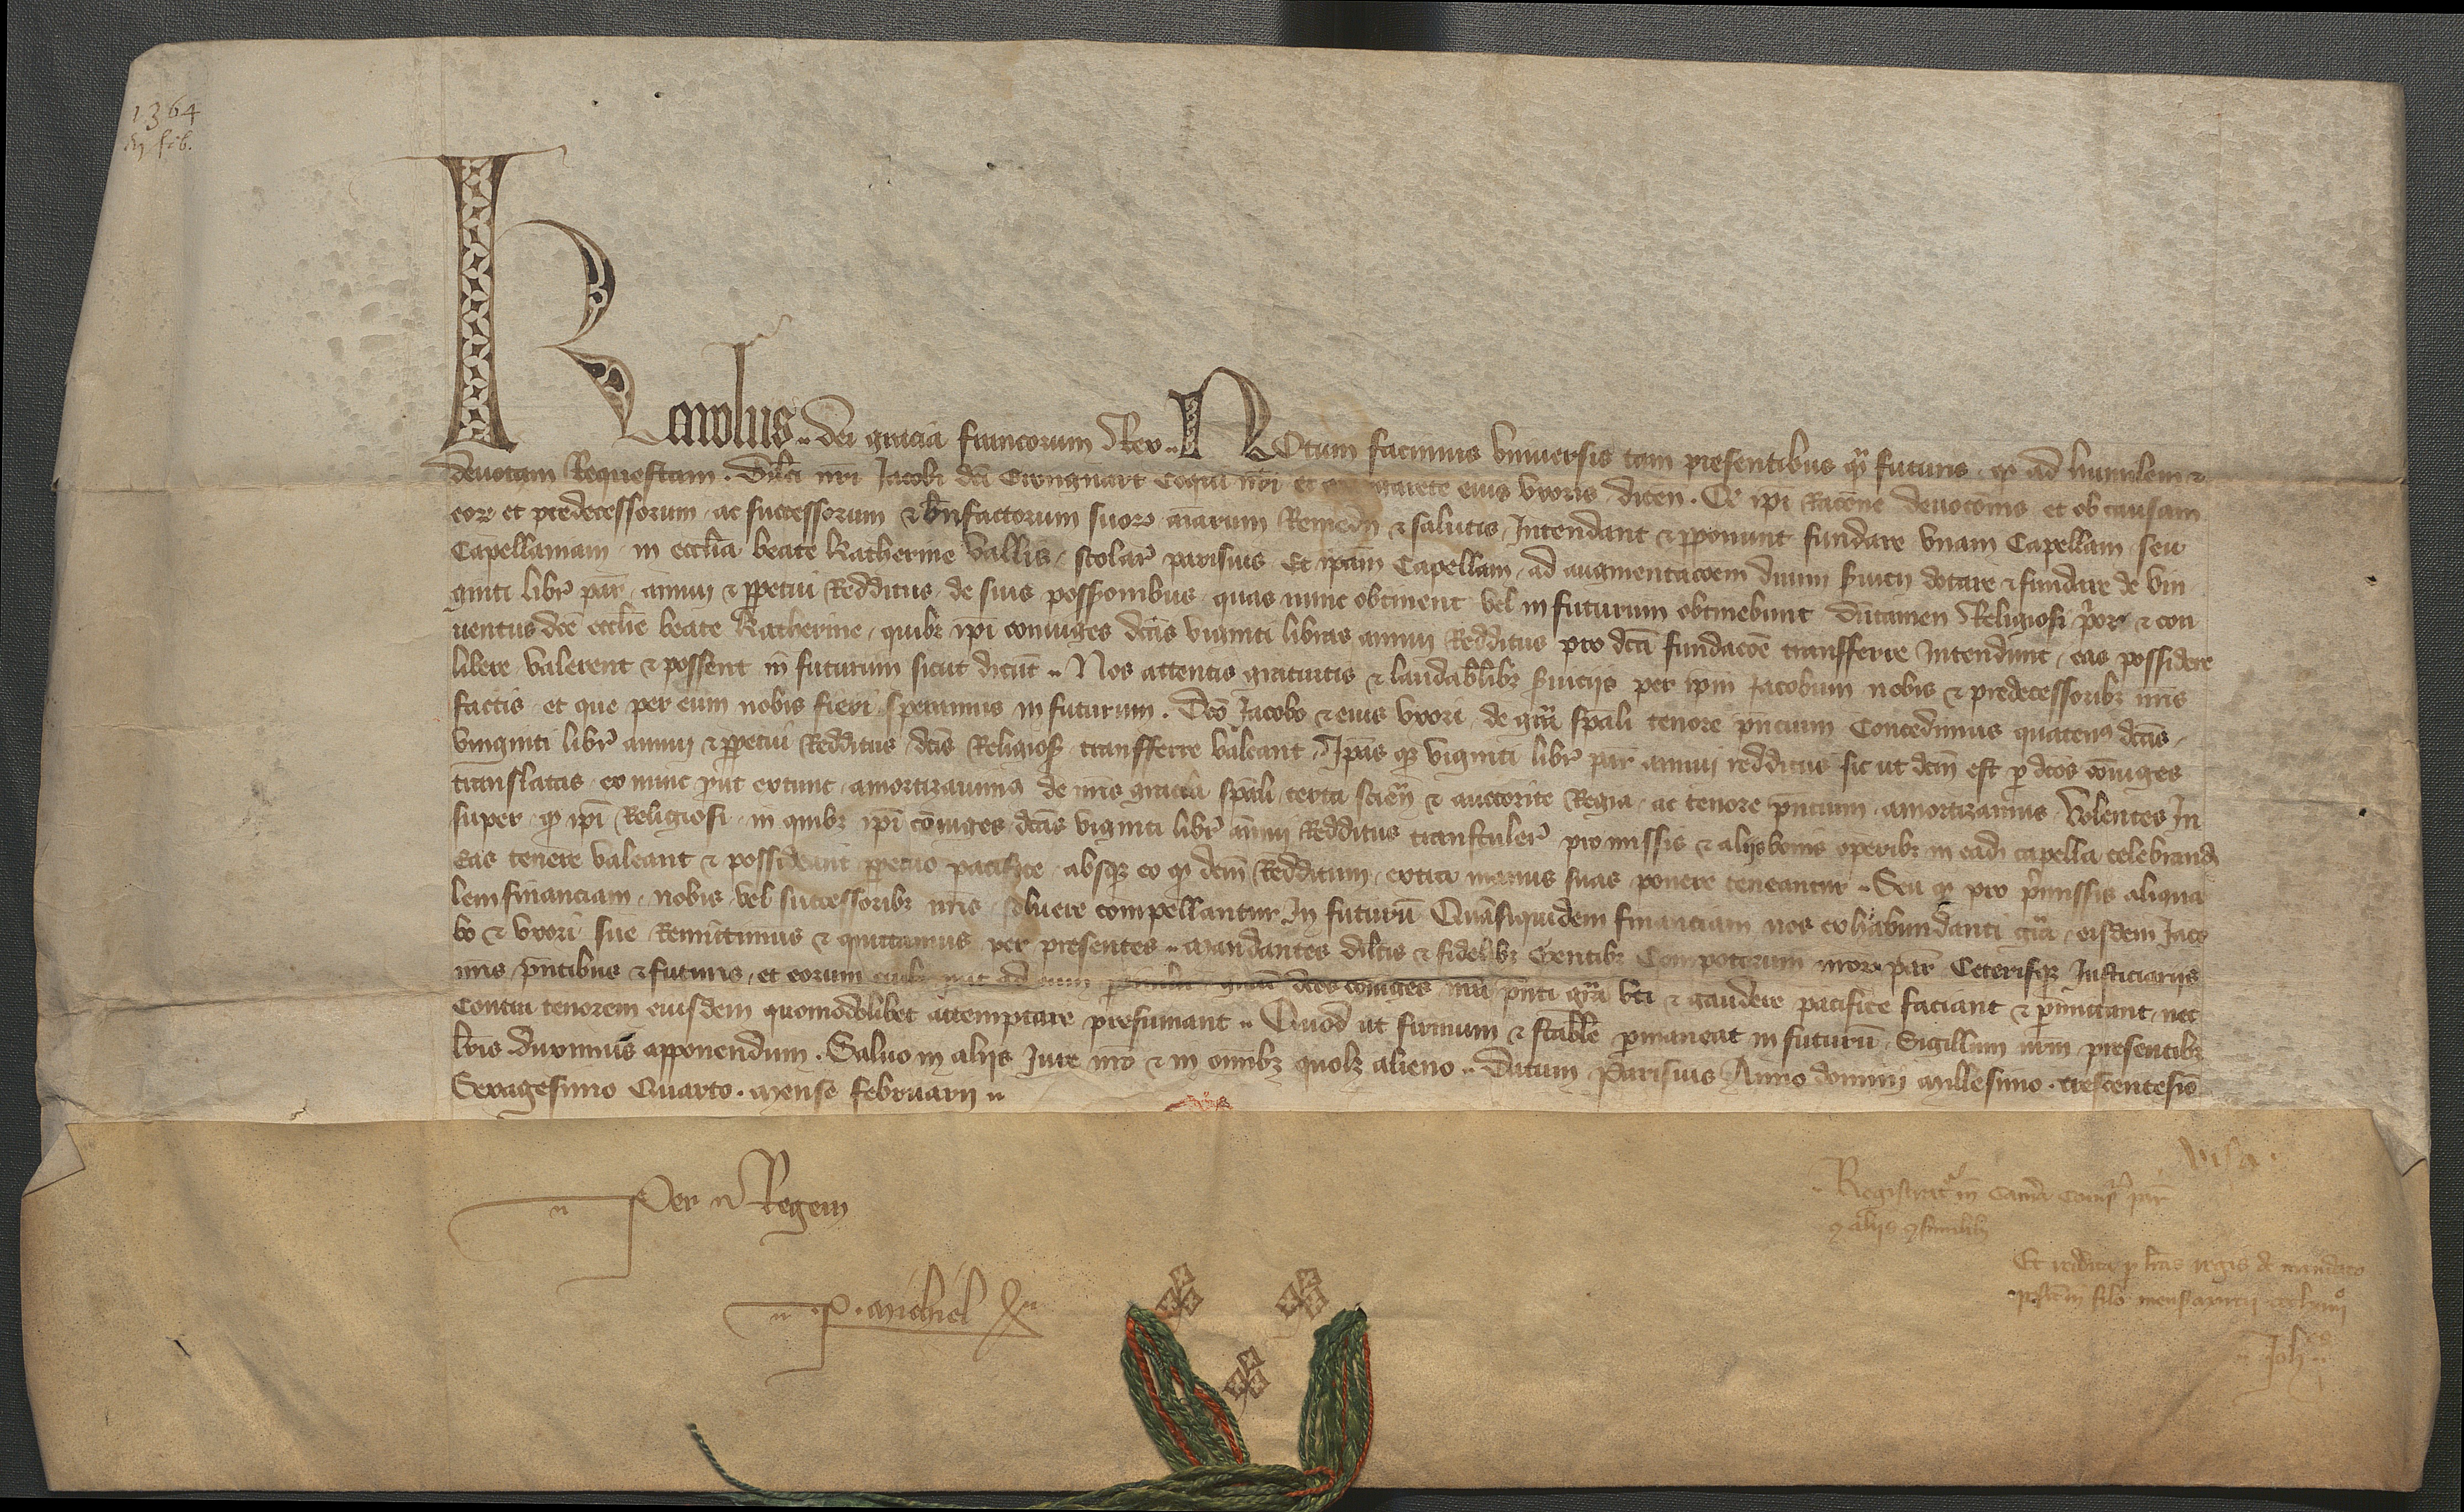 1364
feb.
Karolus .. dei gracia francorum Rex .. Notum facimus universis tam presentibus q̃ futuris . q ad humilem et
devotam Requestam . Dilc̃i nr̃i Jacobi dc̃i coqui nr̃i et eius uxoris dicen̄ . Q̃ ip̃i rac̃one devoc̃onis et ob causam
eor̄ et predecessorum ac successorum et bn̄factorum suor̄ aĩarum Remedii et salutis Intendant et p̱ponunt fundare unam Capellam seu
Capellaniam in eccl̃ia beate Katherine Vallis scolar̃ parisius Et ip̃am Capellam ad augmentac̃oem divini s̃vicii dotare et fundare de vin
ginti libr̃ par̃ annui et p̱petui Redditus de suis poss̃ionibus quas nunc obtinent vel in futurum obtinebunt dũtamen Religiosi p̃or et con
ventus dc̃e eccl̃ie beate Katherine quibȝ ip̃i coniuges dc̃as viginti libras annui Redditus pro dc̃a fundac̃oe transferre Intendunt eas possidere
libere valerent et possent in futurum sicut dicũt .. Nos attentis gratuitis et laudabl̃ibȝ s̃viciis per ip̃m Jacobum nobis et predecessoribȝ nr̃is
factis et que per eum nobis fieri speramus in futurum . Dc̃o Jacobo et eius uxori de gr̃a sp̃ali tenore p̃ncium Concedimus quaten⁹ dc̃as
vinginti libr̃ annui et p̱petui Redditus dc̃is Religios̃ transferre valeant Ip̃as qȝ viginti libr̃ par̃ annui redditus sic ut dc̃m est p̱ dc̃os cõiuges
translatas ex nunc p̃ut extunc amortizavim⁹ de nr̃is gracia sp̃ali certa scien̄ et auctorite Regia ac tenore p̃ncium amortizamus Volentes In
super q ip̃i Religiosi in quibȝ ip̃i cõiuges dc̃as viginti libr̃ annui Redditus transtuler̃ pro missis et aliis bonis operibȝ in ead̃ capella celebrand̃
eas tenere valeant et possideant p̱petuo pacifice absqȝ eo q dc̃m Redditum extra manus suas ponere teneantur .. Seu q pro p̃missis aliqua
lem financiam nobis vel successoribȝ nr̃is solvere compellantur In futurũ Quãsiquidem financiam nos ex habundanti gr̃a eisdem Jaco
bo et uxori sue Remittimus et quittamus per presentes .. Mandantes dilc̃is et fidelibȝ Gentibȝ Compotorum nror̄ par̃ Ceterisqȝ Justiciariis
nr̃is p̃ntibus et futuris et eorum dc̃os coniuges nr̃a p̃nti gr̃a uti et gaudere pacifice faciant et p̱mittant nec
Contra tenorem eiusdem quomodolibet attemptare presumant .. Quod ut firmum et stabl̃e p̱maneat in futurũ Sigillum nr̃m presentibȝ
lr̃is duximus apponendum . Salvo in aliis Jure nr̃o et in om̃ibȝ quolȝ alieno .. Datum Parisius Anno domini Millesimo . trescentesĩo
Sexagesimo Quarto . Mense februarii ..
Per Regem
P . Michiel
visa .
Registrat in cam̃a comp̃ par̃
Et reddita p̱ lr̃as regis de mandato
Joh̃es